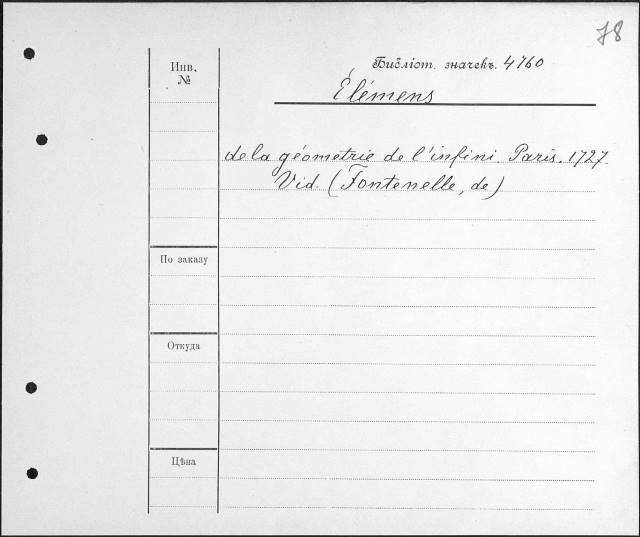 78
Инв.
№
Библіот. значекъ. 4760
Élémens
de la géometrie de l'infini. Paris. 1727.
Vid. (Fontenelle, de)
По заказу
Откуда
Цѣна